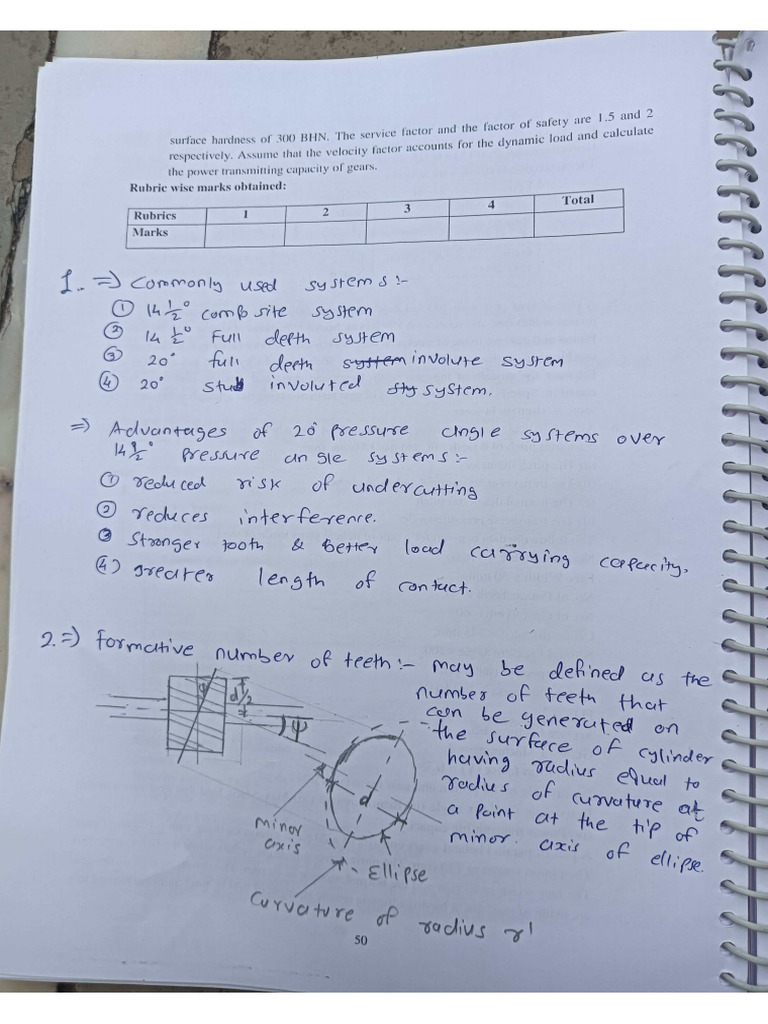 surface hardness of 300 BHN. The service factor and the factor of safety are 1.5 and 2
respectively. Assume that the velocity factor accounts for the dynamic load and calculate
the power transmitting capacity of gears.
Rubric wise marks obtained:
Rubrics 1 2 3 4 Total
Marks
1. ⇒ Commonly used systems :-
① 14 1/2° composite system
② 14 1/2° Full depth system
③ 20° full depth system involute system
④ 20° stub involuted sty system.
⇒ Advantages of 20° pressure angle systems over
14 1/2° pressure angle systems :-
① reduced risk of undercutting
② reduces interference.
③ Stronger tooth & better load carrying capacity.
④ greater length of contact.
2. ⇒ Formative number of teeth :- may be defined as the
number of teeth that
can be generated on
the surface of cylinder
having radius equal to
radius of curvature at
a point at the tip of
minor axis of ellipse.
ψ
d/2
ψ
d
Minor
axis
Ellipse
Curvature of radius r'
50